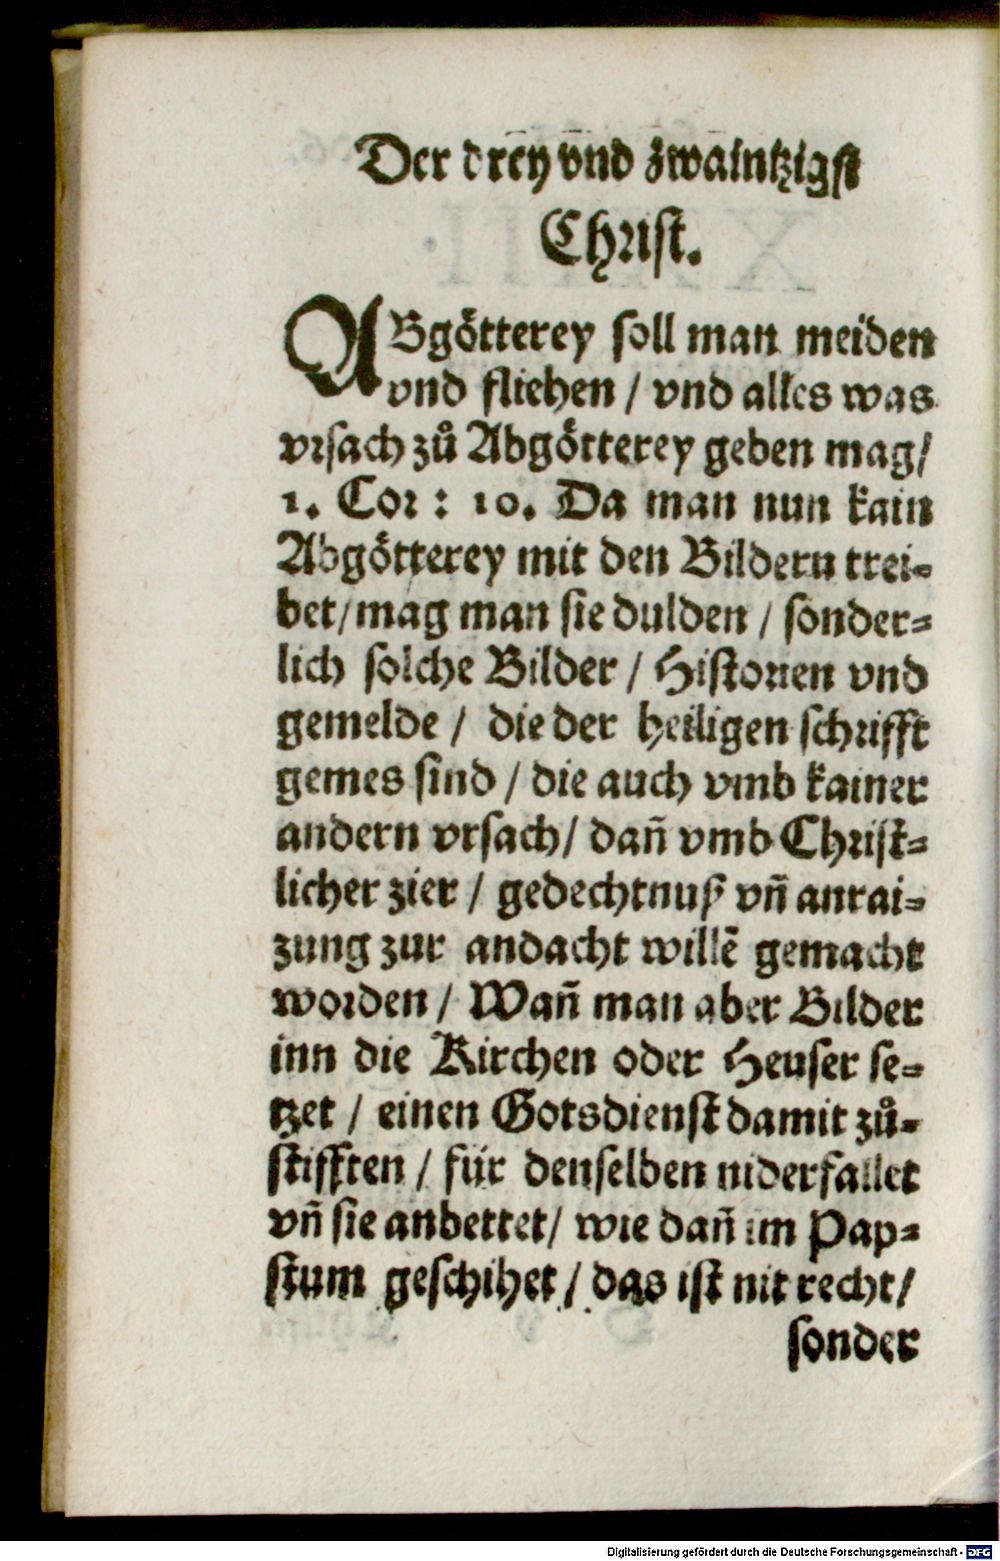 Der drey vnd zwaintzigst
Christ.
ABgötterey soll man meiden
vnd fliehen / vnd alles was
vrsach zů Abgötterey geben mag/
1. Cor : 10. Da man nun kain
Abgötterey mit den Bildern trei-
bet/mag man sie dulden / sonder-
lich solche Bilder / Historien vnd
gemelde / die der heiligen schrifft
gemes sind / die auch vmb kainer
andern vrsach/ dañ vmb Christ-
licher zier / gedechtnuß vñ anrai-
zung zur andacht willẽ gemacht
worden / Wañ man aber Bilder
inn die Kirchen oder Heuser se-
tzet / einen Gotsdienst damit zů-
stifften / für denselben niderfallet
vñ sie anbettet/ wie dañ im Pap-
stum geschihet / das ist nit recht/
sonder
Digitalisierung gefördert durch die Deutsche Forschungsgemeinschaft - DFG